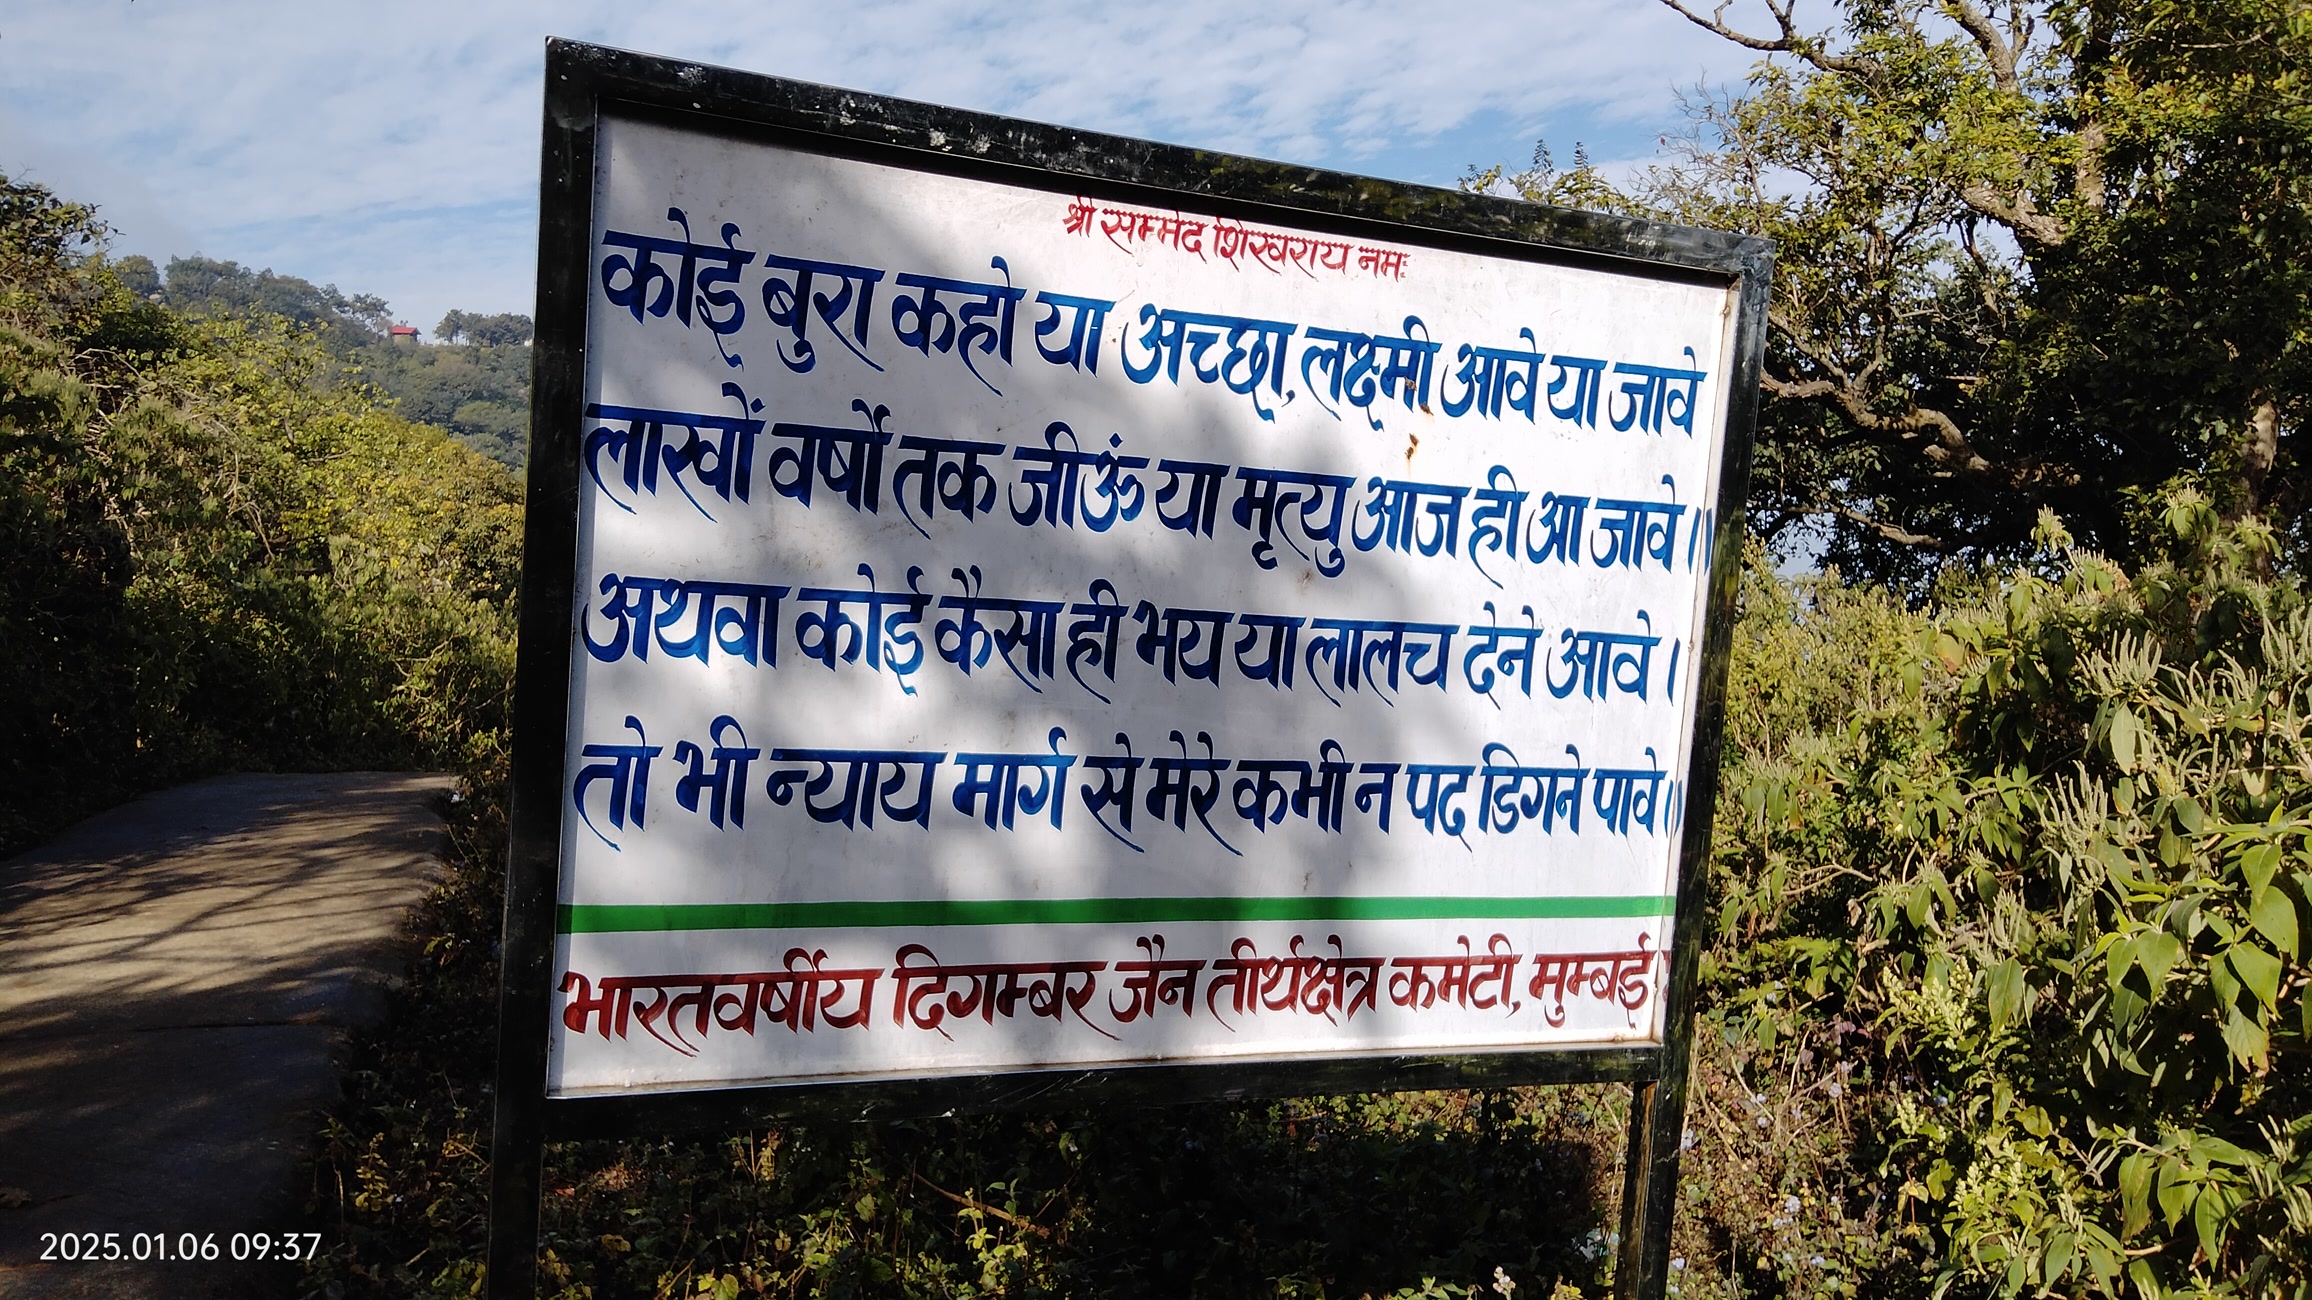 श्री सम्मेद शिखराय नमः
कोई बुरा कहो या अच्छा, लक्ष्मी आवे या जावे
लाखों वर्षों तक जीऊं या मृत्यु आज ही आ जावे।।
अथवा कोई कैसा ही भय या लालच देने आवे।
तो भी न्याय मार्ग से मेरे कभी न पद डिगने पावे।।
भारतवर्षीय दिगम्बर जैन तीर्थक्षेत्र कमेटी, मुम्बई
2025.01.06 09:37